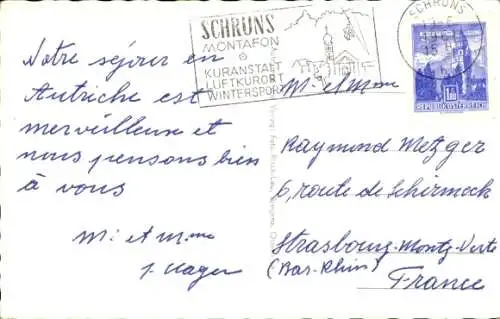 SCHRUNS
MONTAFON
KURANSTALT
LUFTKURORT
WINTERSPORT
SCHRUNS
REPUBLIK ÖSTERREICH
Notre séjour en
Autriche est
merveilleux et
nous pensons bien
à vous
Mr et Mme
M. et Mme
Raymond Metzger
6, route de Schirmeck
Strasbourg-Montg-Verte
(Bas-Rhin)
France